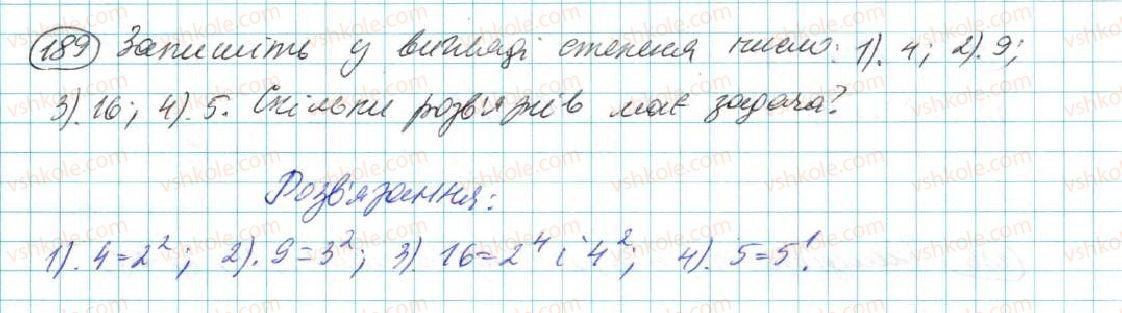 189 Запишіть у вигляді степеня число: 1). 4; 2). 9;
3). 16; 4). 5. Скільки розв'язків має задача?
Розв'язання:
1). 4=2²; 2). 9=3²; 3). 16=2⁴ і 4²; 4). 5=5¹.